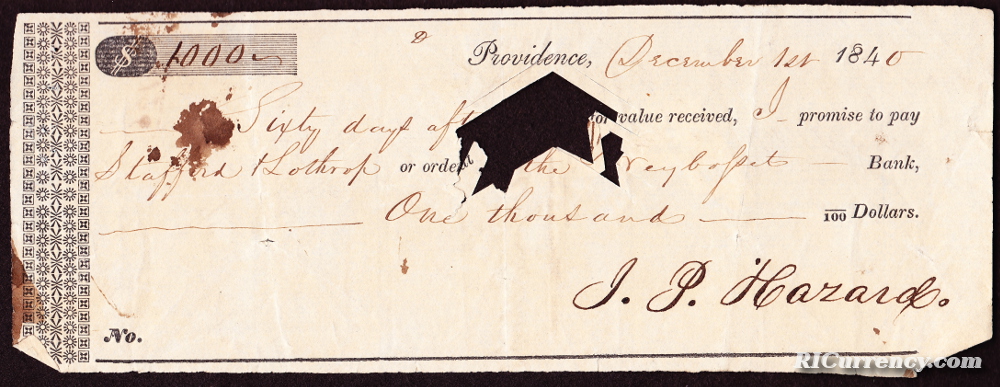 $ 1000
Providence, December 1st 1840
Sixty days aft for value received, I promise to pay
Stafford & Lothrop or order at the Weybosset Bank,
One thousand /100 Dollars.
J. P. Hazard.
No.
RICurrency.com